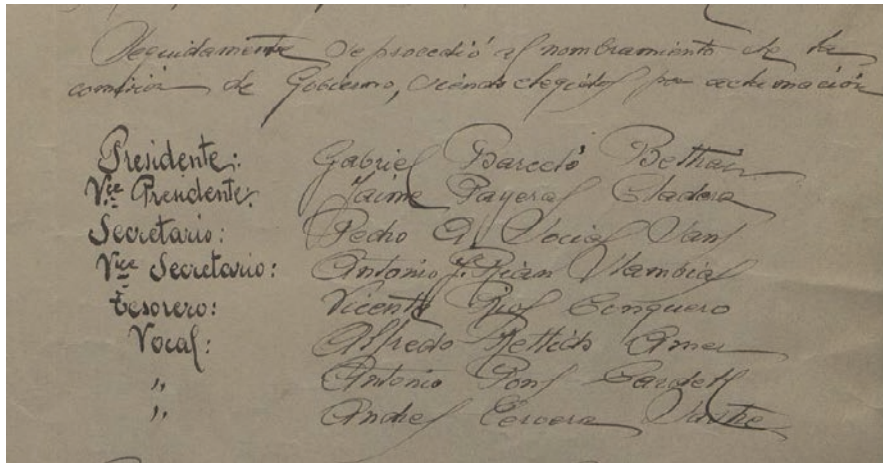 Seguidamente se procedió al nombramiento de la
comisión de Gobierno, siendo elegidos por aclamación
Presidente: Gabriel Barceló Beltrán
Vice Presidente: Jaime Payeras Cladera
Secretario: Pedro A. Socias Sans
Vice Secretario: Antonio J. Vilambias
Tesorero: Vicente Rios Conquero
Vocal: Alfredo Amer
" Antonio Pons Cardell
" Andres Cervera Sastre